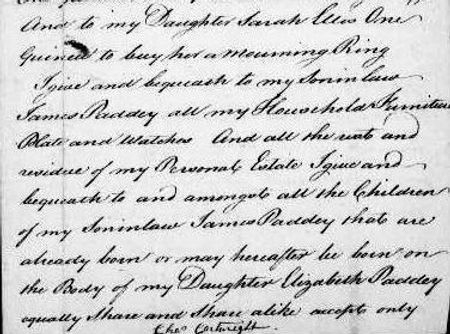 And to my Daughter Sarah Ellis One
Guinea to buy her a Mourning Ring
I give and bequeath to my Soninlaw
James Paddey all my Household Furniture
Plate and Watches And all the rest and
residue of my Personal Estate I give and
bequeath to and amongst all the Children
of my Soninlaw James Paddey that are
already born or may hereafter be born on
the Body of my Daughter Elizabeth Paddey
equally Share and Share alike accepts only
Thos Cartwright.